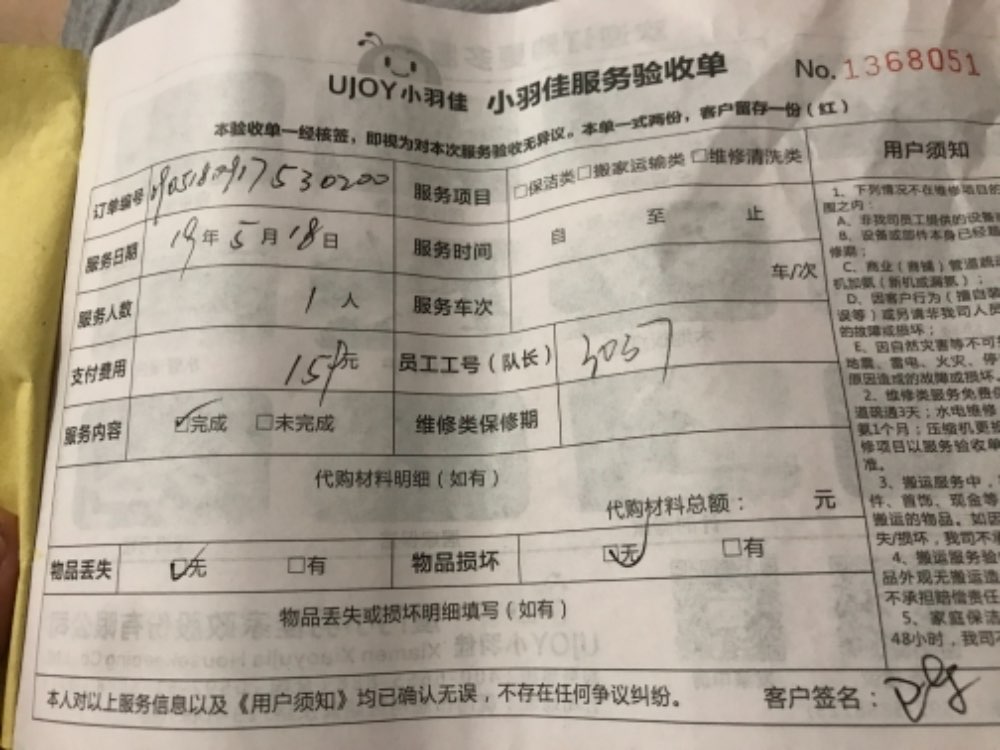 UJOY小羽佳 小羽佳服务验收单 No.1368051
本验收单一经核签，即视为对本次服务验收无异议。本单一式两份，客户留存一份（红）
订单编号 1905180917530200 服务项目 □保洁类□搬家运输类□维修清洗类
服务日期 19年5月18日 服务时间 自 至 止
服务人数 1人 服务车次 车/次
支付费用 159元 员工工号（队长） 3037
服务内容 ☑完成 □未完成 维修类保修期
代购材料明细（如有）
代购材料总额： 元
物品丢失 ☑无 □有 物品损坏 ☑无 □有
物品丢失或损坏明细填写（如有）
本人对以上服务信息以及《用户须知》均已确认无误，不存在任何争议纠纷。 客户签名：
用户须知
1、下列情况不在维修项目的
围之内：
A、非我司员工提供的设备
B、设备或部件本身已经
修期；
C、商业（商铺）管道疏
机加氨（新机或漏氨）；
D、因客户行为（擅自
误等）或另请非我司人员
的故障或损坏；
E、因自然灾害等不可
地震、雷电、火灾、停
原因造成的故障或损坏。
2、维修类服务免费
道疏通3天；水电维修
氨1个月；压缩机更
修项目以服务验收单
准。
3、搬运服务中，
件、首饰、现金等
搬运的物品。如因
失/损坏，我司不
4、搬运服务验
品外观无搬运造
不承担赔偿责任
5、家庭保洁
48小时，我司